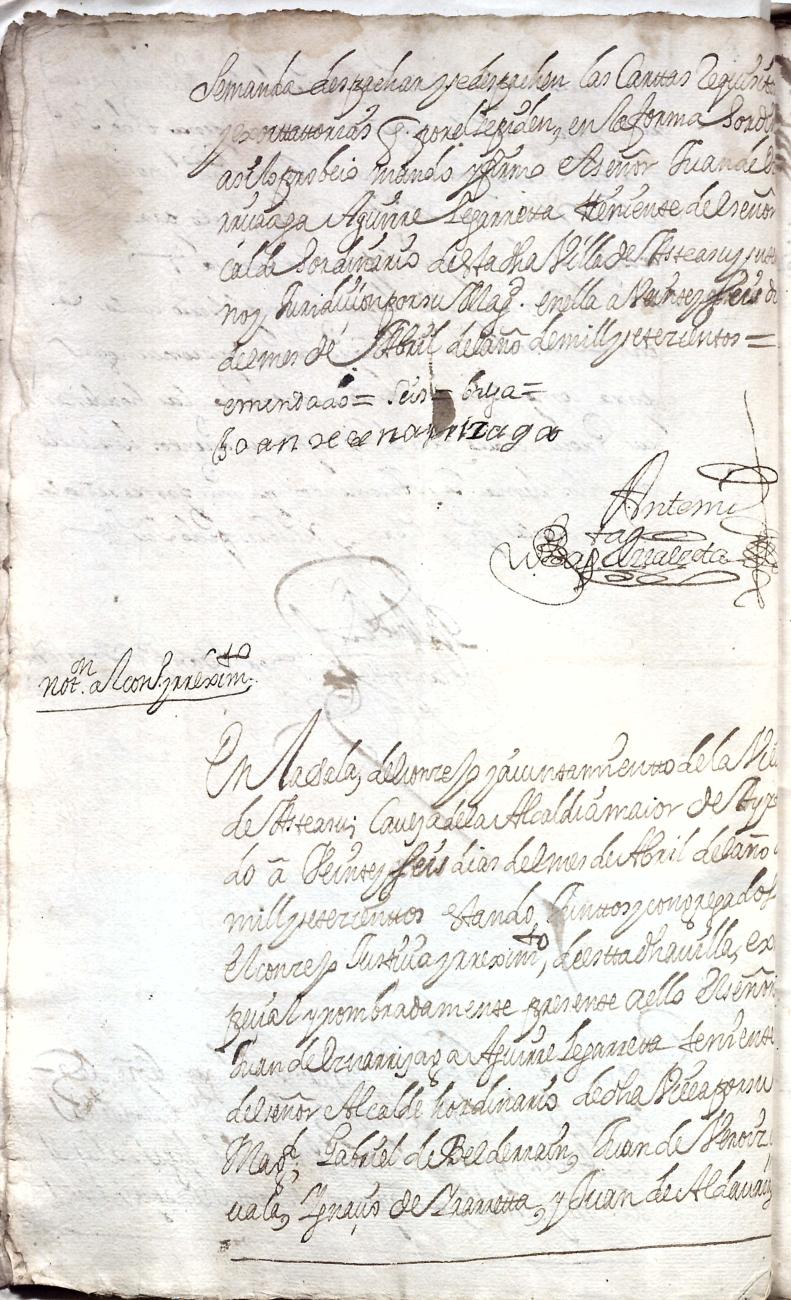 Semanda despachar y sedespachen las Carttas Requisit
yexorttattorias q. porellepiden, en laforma hordi
asilo probeio mando yfirmo elseñor Juan de
rrizaga Aguirre Legarretta theniente del señor
calde hordinario destadha Villa de Asteasu y su
no, Juridicion por su Mag.d enella a Veinte y seis di
delmes de Abril delaño de mill y setezientos =
emendado = seis =
Joan de eznarrizaga
Antemi
not.on al con.o y rrexim.to
En lasala, delconzejo y aiuntamiento dela Vi
de Asteasu, Caveza dela Alcaldia maior de Ayz
do â Veinte y seis dias delmes de Abril delaño
mill y setezientos estando Junttos y congregados
el conzejo Justicia y rrexim.to, deesttadhavilla, ex
pecial y nombradamente presente aello El señor
Juan de Eznarrizaga Aguirre Legarretta theniente
del señor Alcalde hordinario de dha Villa por su
Mag.d, Gabriel de Belderrain, Juan de
uala, Ygnacio de Yrarretta, y Juan de